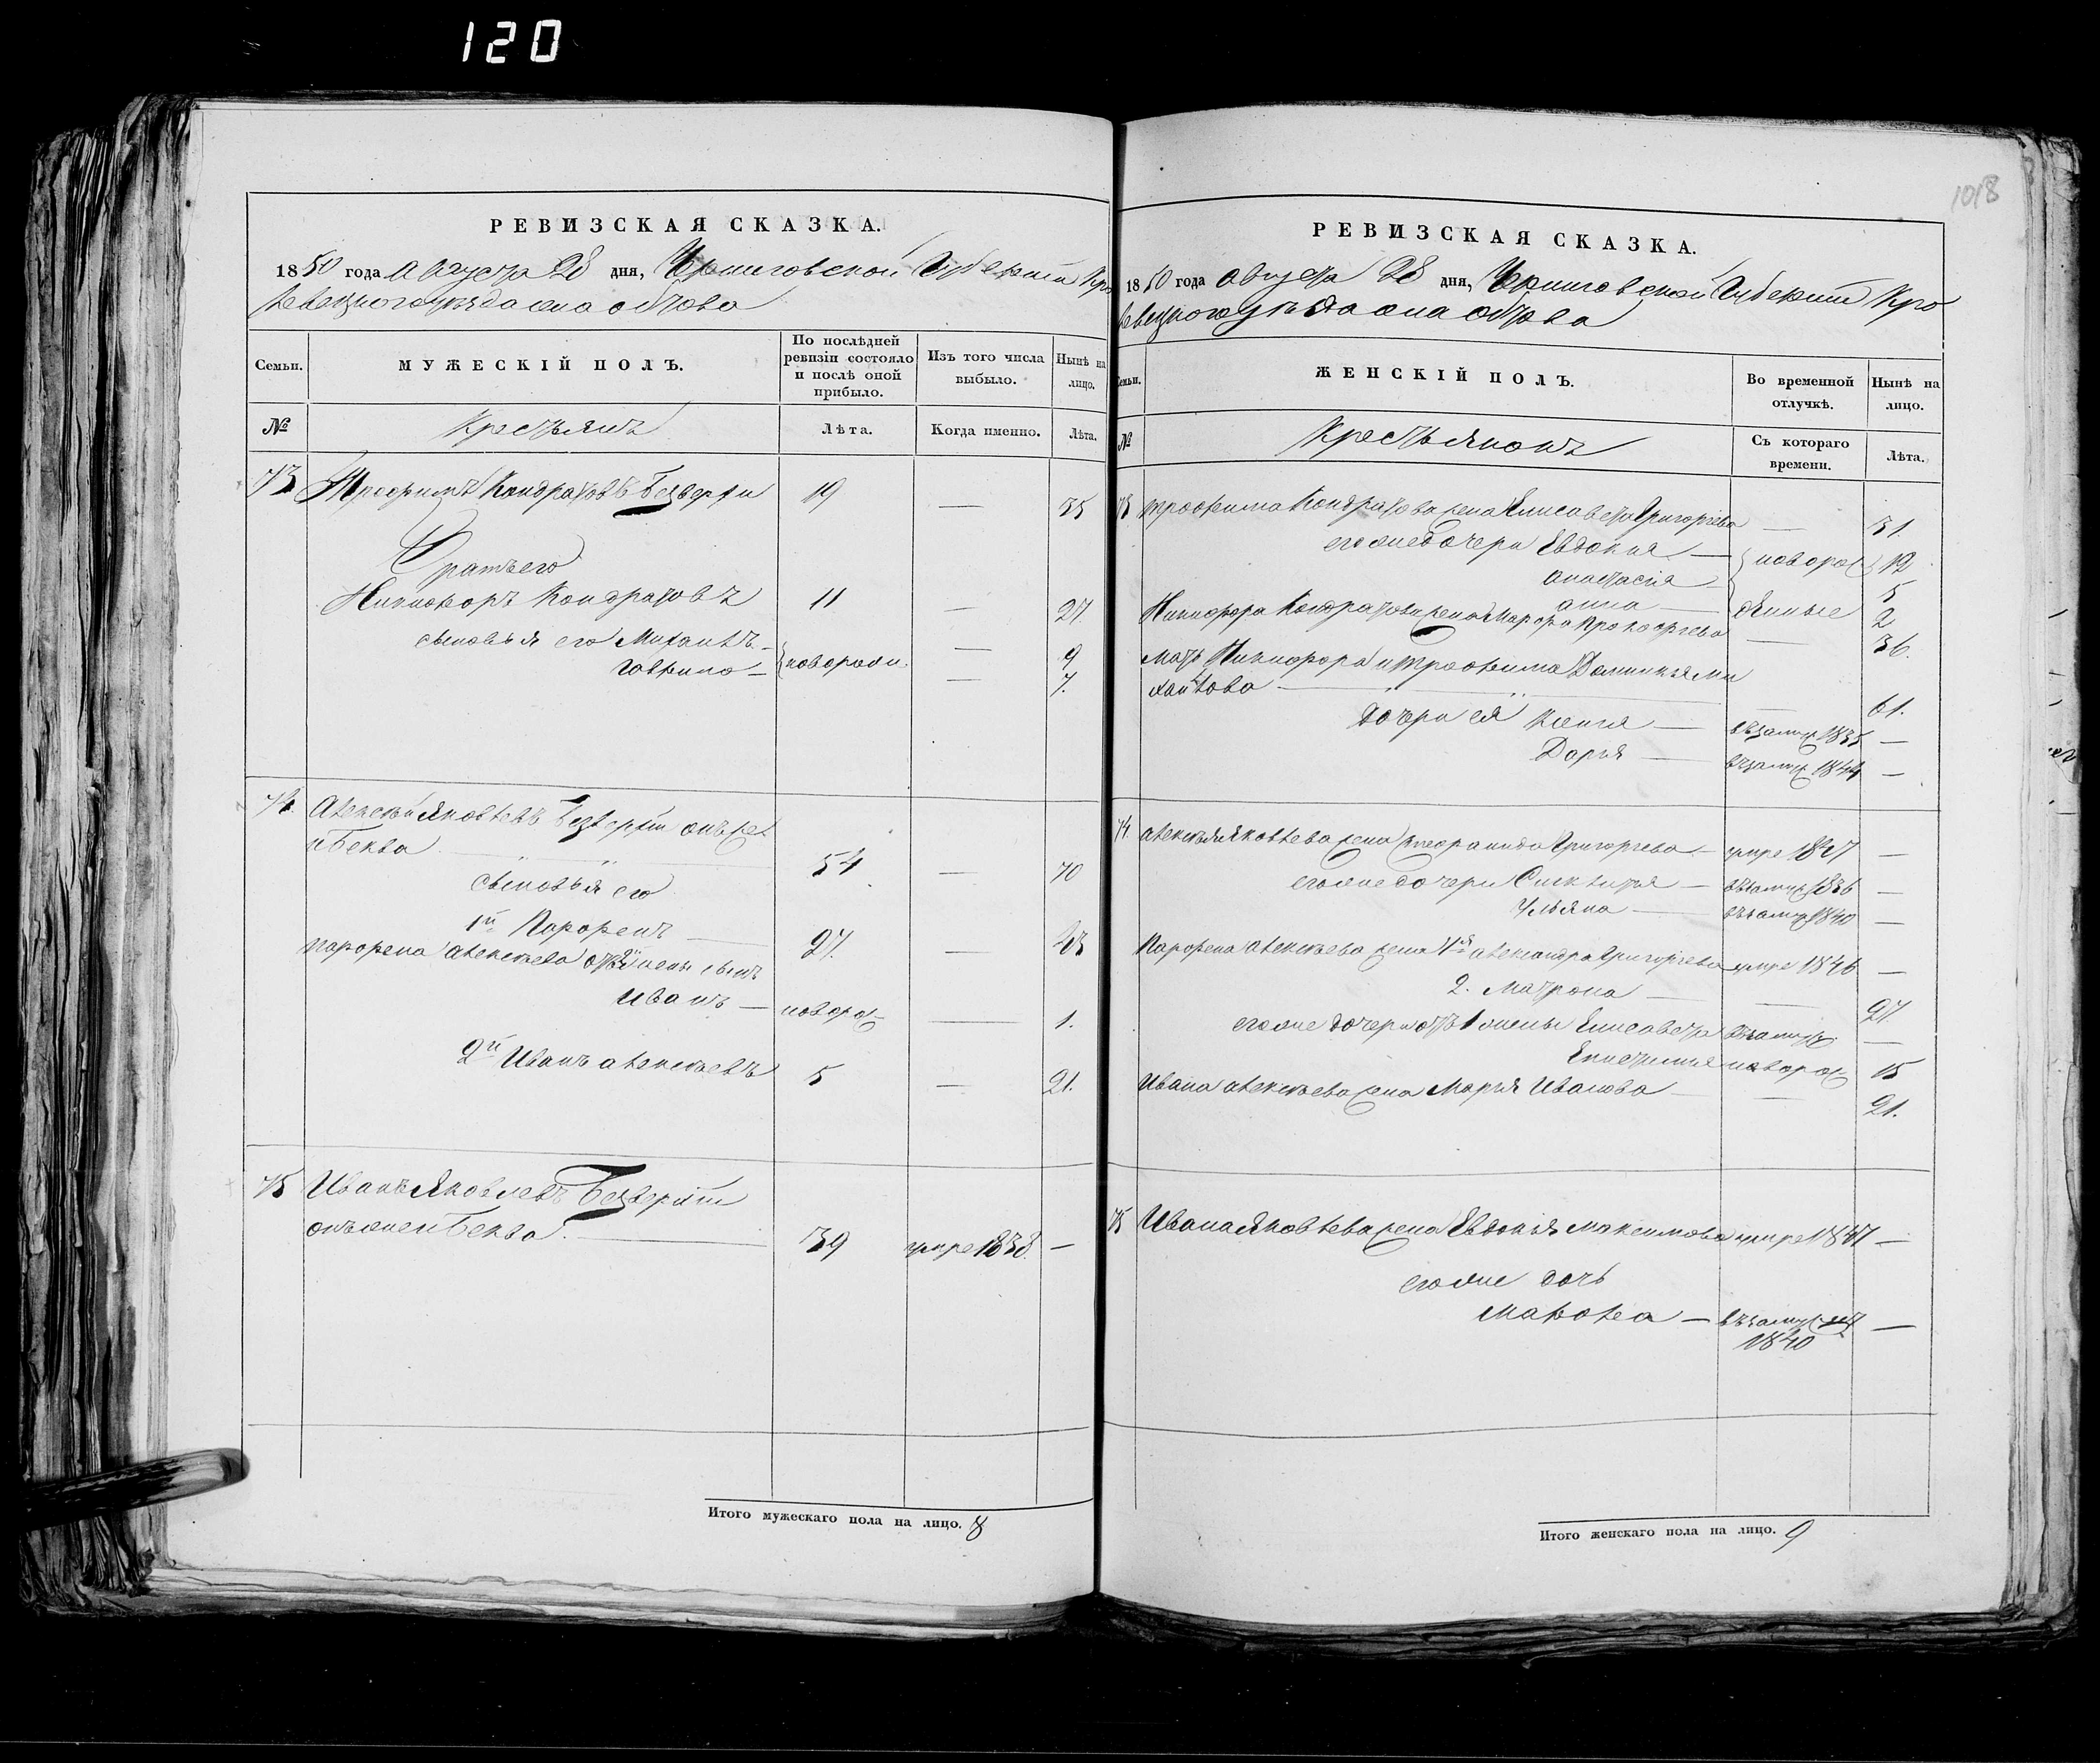 120
1018
РЕВИЗСКАЯ СКАЗКА.
1850 года Августа 28 дня, Черниговской Губернiи Кро
левецкого уезда села
Семьи.
МУЖЕСКІЙ ПОЛЪ.
По послѣдней ревизіи состояло и послѣ оной прибыло.
Изъ того числа выбыло.
Нынѣ на лицо.
№
Крестьянъ
Лѣта.
Когда именно.
Лѣта.
73 Трофимъ Кондратовъ 19 — 35
Братъ его
Никифоръ Кондратовъ 11 — 27.
сыновья его Михаилъ — новорож. — 9
Гаврило — — 7.
74. Алексѣй Яковлевъ
и Беква 54 — 70
сыновья его
1й Парфенъ 27. — 43
Парфена Алексѣева отъ 2й жены сынъ
Иванъ — новорож — 1.
2й Иванъ Алексѣевъ 5 — 21.
75 Иванъ Яковлевъ
онъ же и Беква. 39 умре 1838. —
Итого мужескаго пола на лицо. 8
РЕВИЗСКАЯ СКАЗКА.
1850 года Августа 28 дня, Черниговской Губернiи Кро
левецкого Уезда села
Семьи.
ЖЕНСКІЙ ПОЛЪ.
Во временной отлучкѣ.
Нынѣ на лицо.
№
Крестьянокъ
Съ котораго времени.
Лѣта.
73 Трофима Кондратова жена Елисавета Григорьева — 31.
его же дочери Евдокия — новорож 12
Анастасiя 5
Анна — денные 2
Никифора Кондратова жена Марфа Прокофьева — 36.
Мать Никифора и Трофима Домникия Ми
хайлова — 61.
дочери ея Ксения — въ замуж 1835 —
Дарья — въ замуж 1844 —
74. Алексѣя Яковлева жена Григорьева — умре 1847 —
его же дочери — въ замуж 1836 —
Ульяна — въ замуж 1840 —
Парфена Алексѣева жена 1я Александра Григорьева умре 1846 —
2. Матрона — — 27
его же дочери отъ 1 жены Елисавета въ замуж —
новорож 15
Ивана Алексѣева жена Марья Иванова — — 21.
75 Ивана Яковлева жена Евдокия Максимова умре 1847 —
его же дочь
— въ замуж
1840 —
Итого женскаго пола на лицо. 9